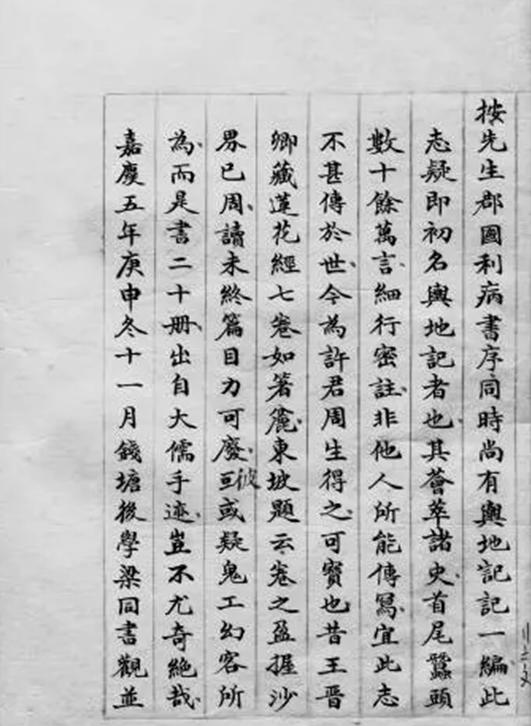 按先生郡國利病書序同時尚有輿地記記一編此
志疑即初名輿地記者也其薈萃諸史首尾蠶頭
數十餘萬言細行密註非他人所能傳寫宜此志
不甚傳於世今為許君周生得之可寶也昔王晋
卿藏蓮花經七卷如箸簏東坡題云卷之盈握沙
界已周讀未終篇目力可廢彼亘或疑鬼工幻客所
為而是書二十册出自大儒手迹豈不尤奇絕哉
嘉慶五年庚申冬十一月錢塘後學梁同書觀並